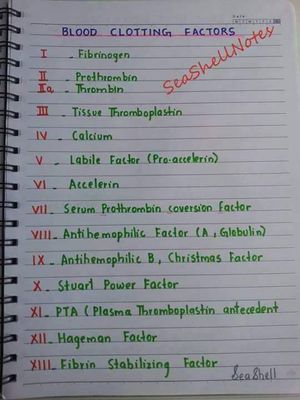 Date:
BLOOD CLOTTING FACTORS
SeaShellNotes
I - Fibrinogen
II - Prothrombin
IIa - Thrombin
III - Tissue Thromboplastin
IV - Calcium
V - Labile Factor (Pro-accelerin)
VI - Accelerin
VII - Serum Prothrombin coversion factor
VIII - Antihemophilic Factor (A, Globulin)
IX - Antihemophilic B, Christmas Factor
X - Stuart Power Factor
XI - PTA (Plasma Thromboplastin antecedent
XII - Hageman Factor
XIII - Fibrin Stabilizing Factor
SeaShell